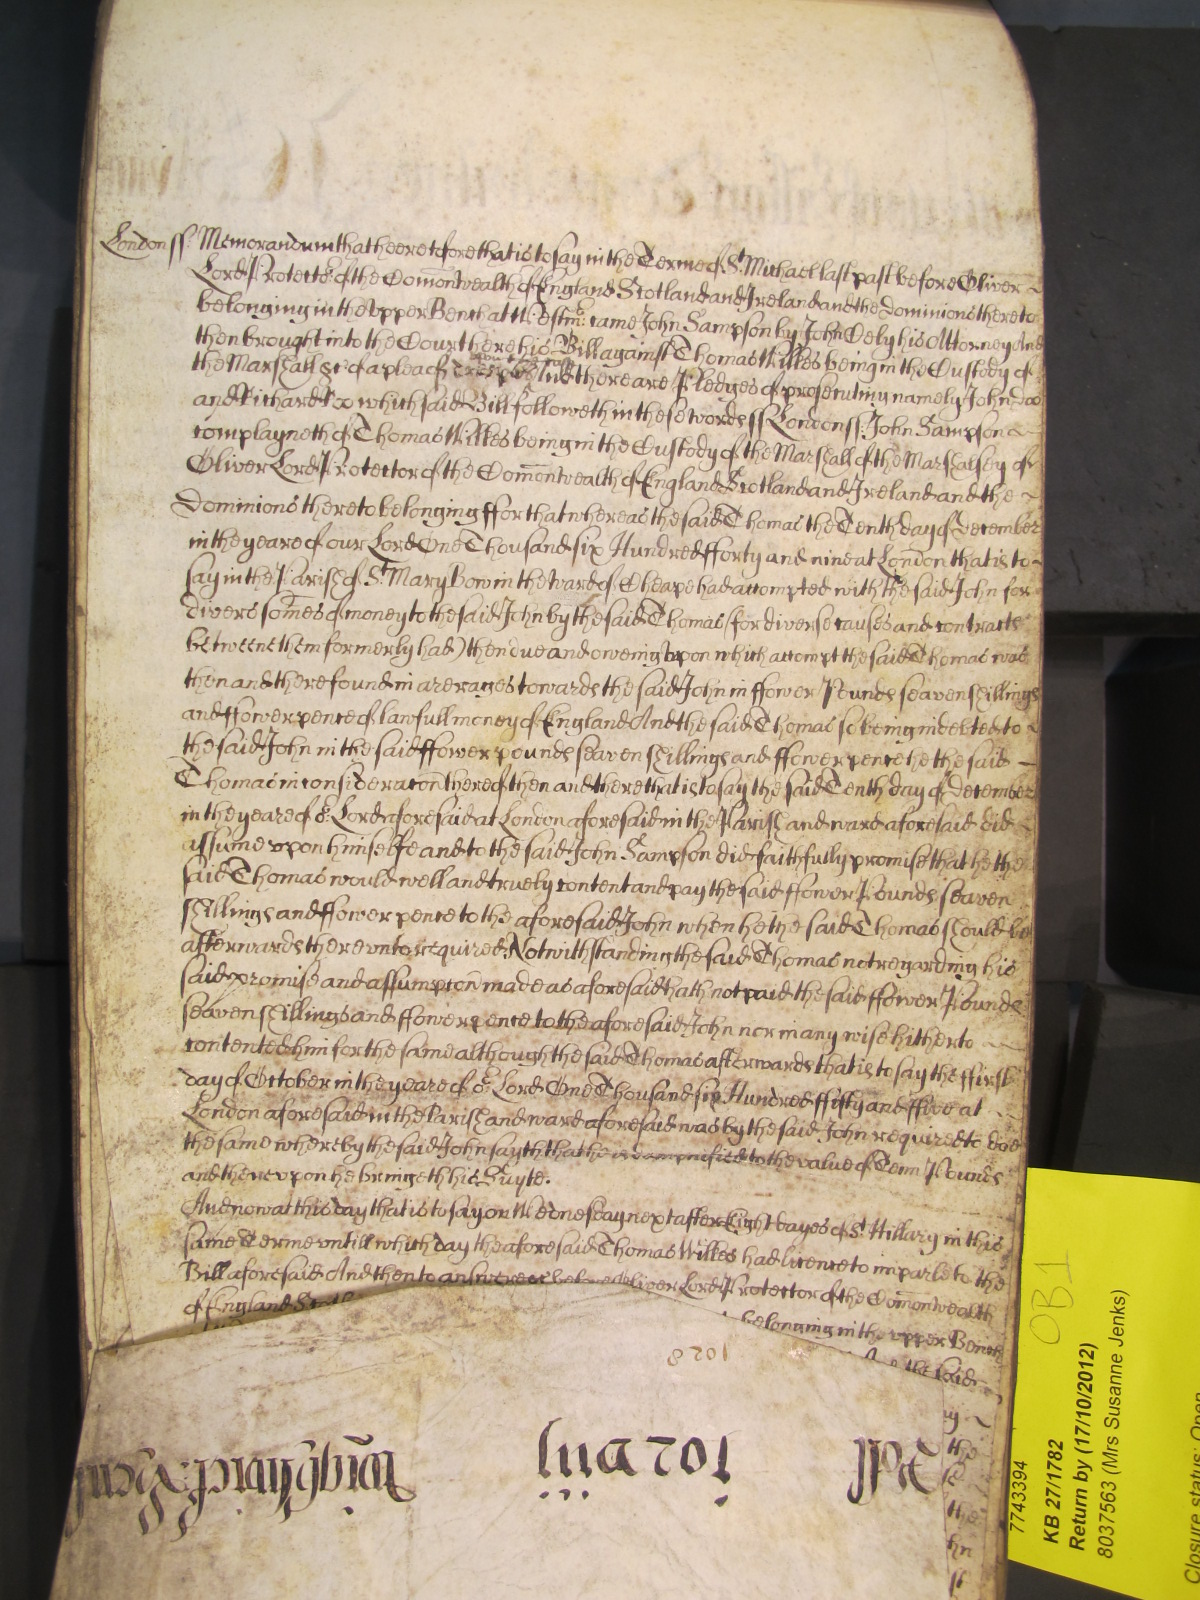 London ss. Memorandum that heeretofore that is to say in the Terme of St. Michael last past before Oliver
Lord Protector of the Com̄onwealth of England Scotland and Ireland and the Dominions thereto
belonging in the upper Bench at Westmr. came John Sampson by John Oely his Attorney And
then brought into the Court here his Bill against Thomas Wilkes being in the Custody of
the Marshall &c of a plea of And there are Pledges of prosecuting namely John Doo
and Richard Roo which said Bill followeth in these words ss London ss. John Sampson
complayneth of Thomas Wilkes being in the Custody of the Marshall of the Marshalsey of
Oliver Lord Protector of the Com̄onwealth of England Scotland and Ireland and the
Dominions thereto belonging ffor that whereas the said Thomas the Tenth day of December
in the yeare of our Lord One Thousand six Hundred fforty and nine at London that is to
say in the Parish of St. Mary Bow in the ward of Cheape had accompted with the said John for
divers som̄es of money to the said John by the said Thomas (for diverse causes and contracts
betweene them formerly had) then due and oweing upon which accompt the said Thomas was
then and there found in arerages towards the said John in ffower Pounds seaven shillings
and ffower pence of lawfull money of England And the said Thomas so being indebted to
the said John in the said ffower pounds seaven shillings and ffower pence he the said
Thomas in consideracon̄ thereof then and there that is to say the said Tenth day of December
in the yeare of or. Lord aforesaid at London aforesaid in the Parish and ward aforesaid did
assume upon himselfe and to the said John Sampson did faithfully promise that he the
said Thomas would well and truely content and pay the said ffower Pounds seaven
shillings and ffower pence to the aforesaid John when he the said Thomas should be
afterwards thereunto required. Notwithstanding the said Thomas not regarding his
said promise and assumpcon̄ made as aforesaid hath not paid the said ffower Pounds
seaven shillings and ffower pence to the aforesaid John nor in any wise hitherto
contented him for the same although the said Thomas afterwards that is to say the ffirst
day of October in the yeare of or. Lord One Thousand six Hundred ffifty and ffive at
London aforesaid in the Parish and ward aforesaid was by the said John required to doe
the same whereby the said John sayth that he is dampnified to the value of Tenn Pounds
and thereupon he bringeth his Suyte.
And now at this day that is to say on Wednesday next after Eight dayes of St. Hillary in this
same Terme untill which day the aforesaid Thomas Wilkes had licence to imparle to the
Bill aforesaid And then to answere &c before Oliver Lord Protector of the Com̄onwealth
of England
belonging in the upper Bench
the said
1028
Roll
7743394
KB 27/1782
Return by (17/10/2012)
8037563 (Mrs Susanne Jenks)
Closure status: Open
OB1